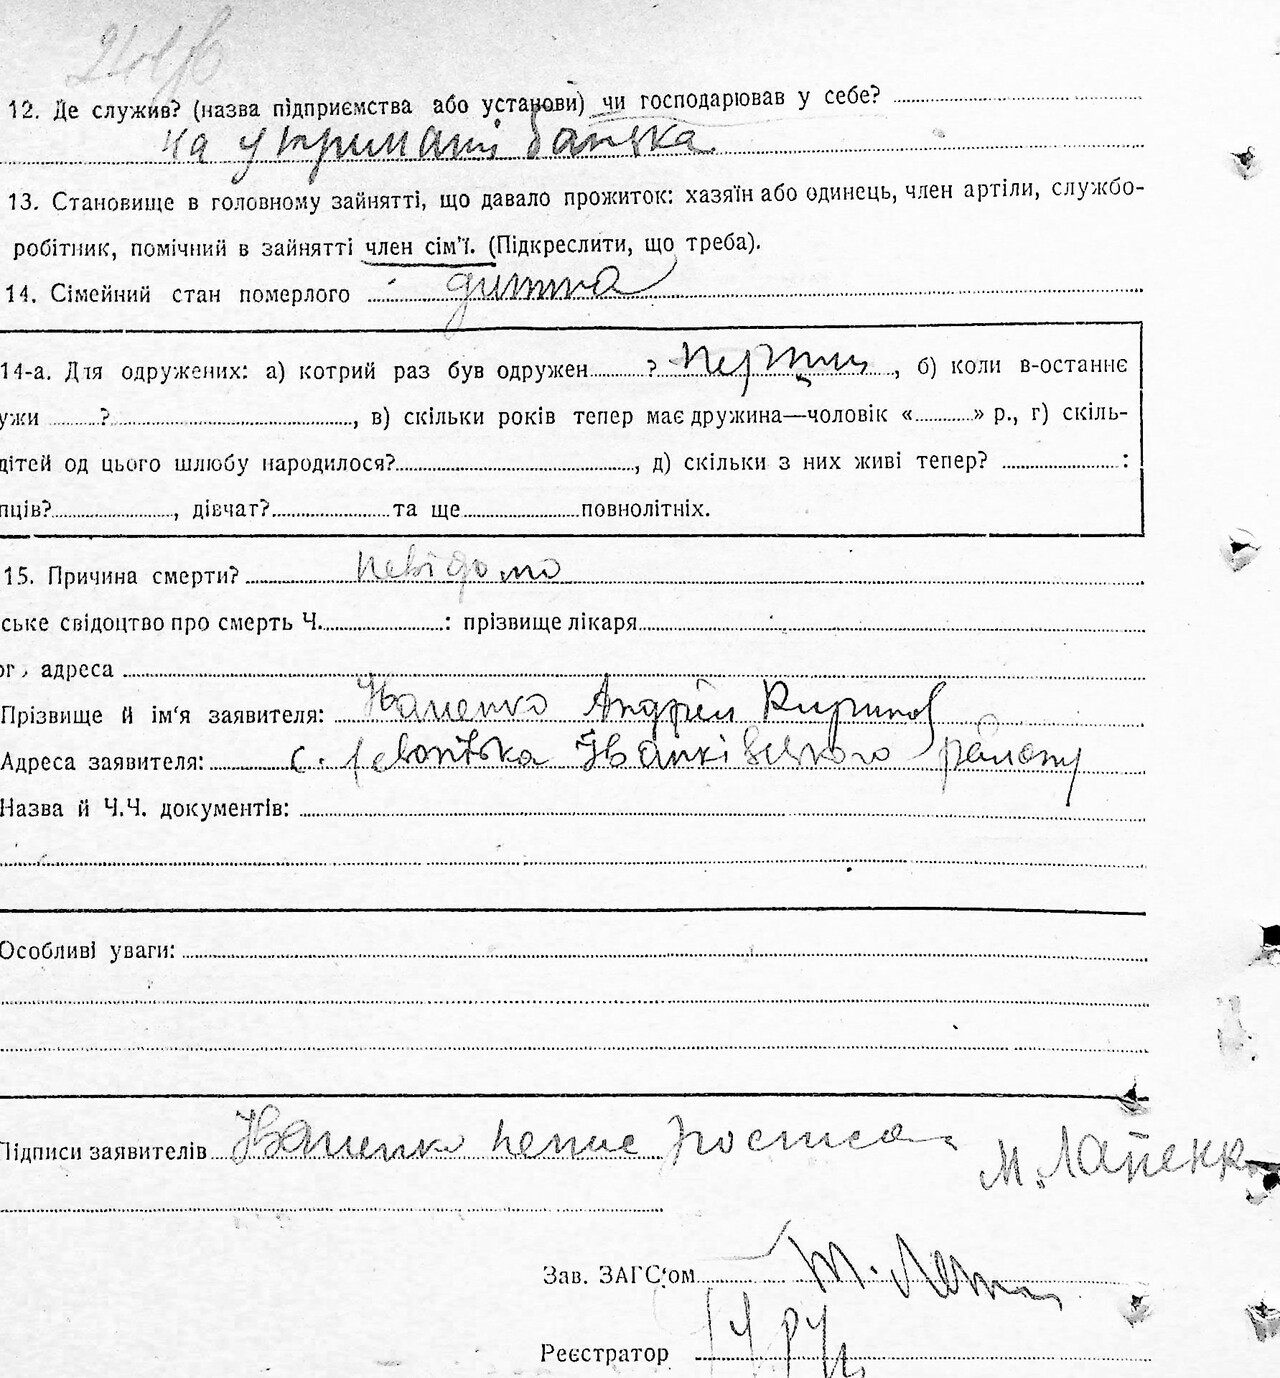 12. Де служив? (назва підприємства або установи) чи господарював у себе?
на утримані батька
13. Становище в головному зайнятті, що давало прожиток: хазяїн або одинець, член артіли, службо-
робітник, помічний в зайнятті член сім'ї. (Підкреслити, що треба).
14. Сімейний стан померлого дитина
14-а. Для одружених: а) котрий раз був одружен ? , б) коли в-останнє
ужи ? , в) скільки років тепер має дружина—чоловік « » р., г) скіль-
дітей од цього шлюбу народилося? , д) скільки з них живі тепер? :
пців? , дівчат? та ще повнолітніх.
15. Причина смерти? невідомо
ське свідоцтво про смерть Ч. : прізвище лікаря
ог, адреса
Прізвище й ім'я заявителя: Андрій
Адреса заявителя: с. Іванківського району
Назва й Ч.Ч. документів:
Особливі уваги:
Підписи заявителів
Зав. ЗАГС'ом
Реєстратор